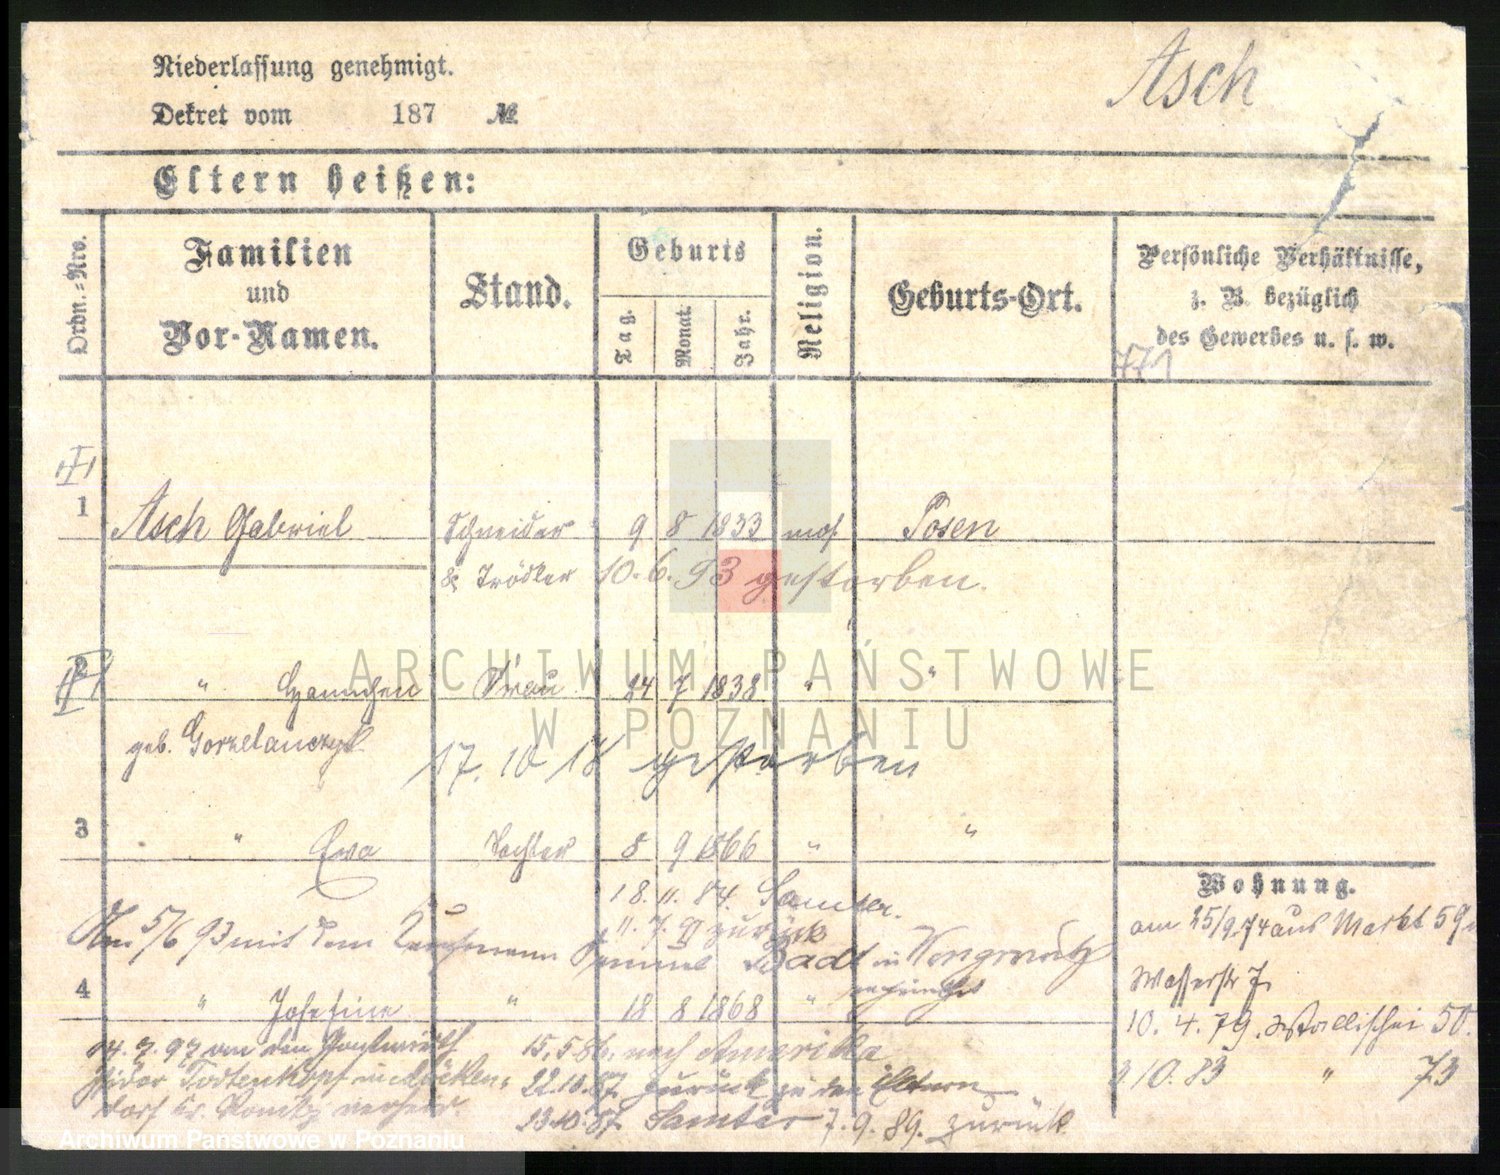 Niederlassung genehmigt.
Asch
Dekret vom 187 №
Eltern heißen:
Ordn.-Nro.
Familien und Vor-Namen.
Stand.
Geburts
Tag.
Monat.
Jahr.
Religion.
Geburts-Ort.
Persönliche Verhältnisse,
z. B. bezüglich
des Gewerbes u. s. w.
771
1 Asch Gabriel Schneider 9 8 1833 mos. Posen
& Trödler 10. 6. 93 gestorben.
2 " Hannchen Frau 24 7 1838 " "
geb. Gorzelanczyk
17. 10 18 gestorben
3 " Ewa Tochter 8 9 1866 " "
18. 11. 84. Samter.
11. 7. 91 zurück
Am 5/6 93 mit dem Kaufmann Badt in
4 " Josefine " 18 8 1868 "
15.5 86. nach Amerika
22.10.87. zurück zu den Eltern
Todtenkopf in
23.10.87. Samter 7. 9. 89. zurück
Wohnung.
am 25/9 74 aus Markt 59
Wasserstr 7.
10. 4. 79. Wallischei 50.
3 10. 83 " 73
ARCHIWUM PAŃSTWOWE
W POZNANIU
Archiwum Państwowe w Poznaniu